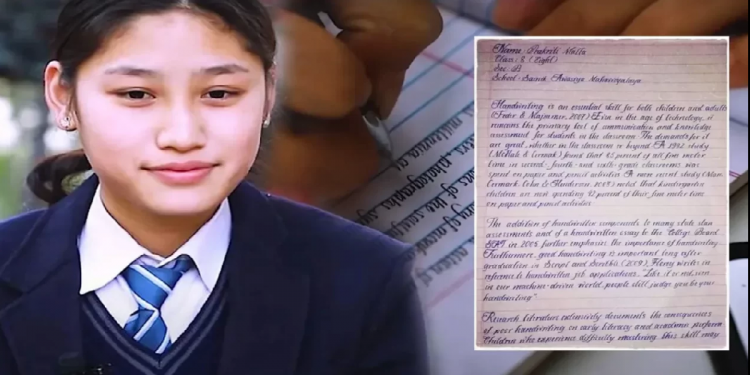 Name: Prakriti Malla
Class: 8 (Eight)
Sec: 'B'
School: Sainik Awasiya Mahavidyalaya
Handwriting is an essential skill for both children and adults
(Feder & Majnemer, 2007). Even in the age of technology, it
remains the primary tool of communication and knowledge
assessment for students in the classroom. The demands for it
are great, whether in the classroom or beyond. A 1992 study
(McHale & Cermak) found that 85 percent of all fine motor
time in second- fourth- and sixth-grade classrooms was
spent on paper and pencil activities. A more recent study
Cermak, Cohn & Henderson, 2009) noted that kindergarten
children are now spending 42 percent of their fine motor time
on paper and pencil activities.
The addition of handwritten components to many state
assessments and of a handwritten essay to the College Board
SAT in 2005 further emphasize the importance of handwriting
Furthermore, good handwriting is important long after
graduation. in (2009), Florey writes in
reference to handwritten job applications. "Like it or not, even
in our machine-driven world, people still judge you by your
handwriting".
Research literature extensively documents the consequences
of poor handwriting on early literacy and academic
Children who experience difficulty mastering this skill may